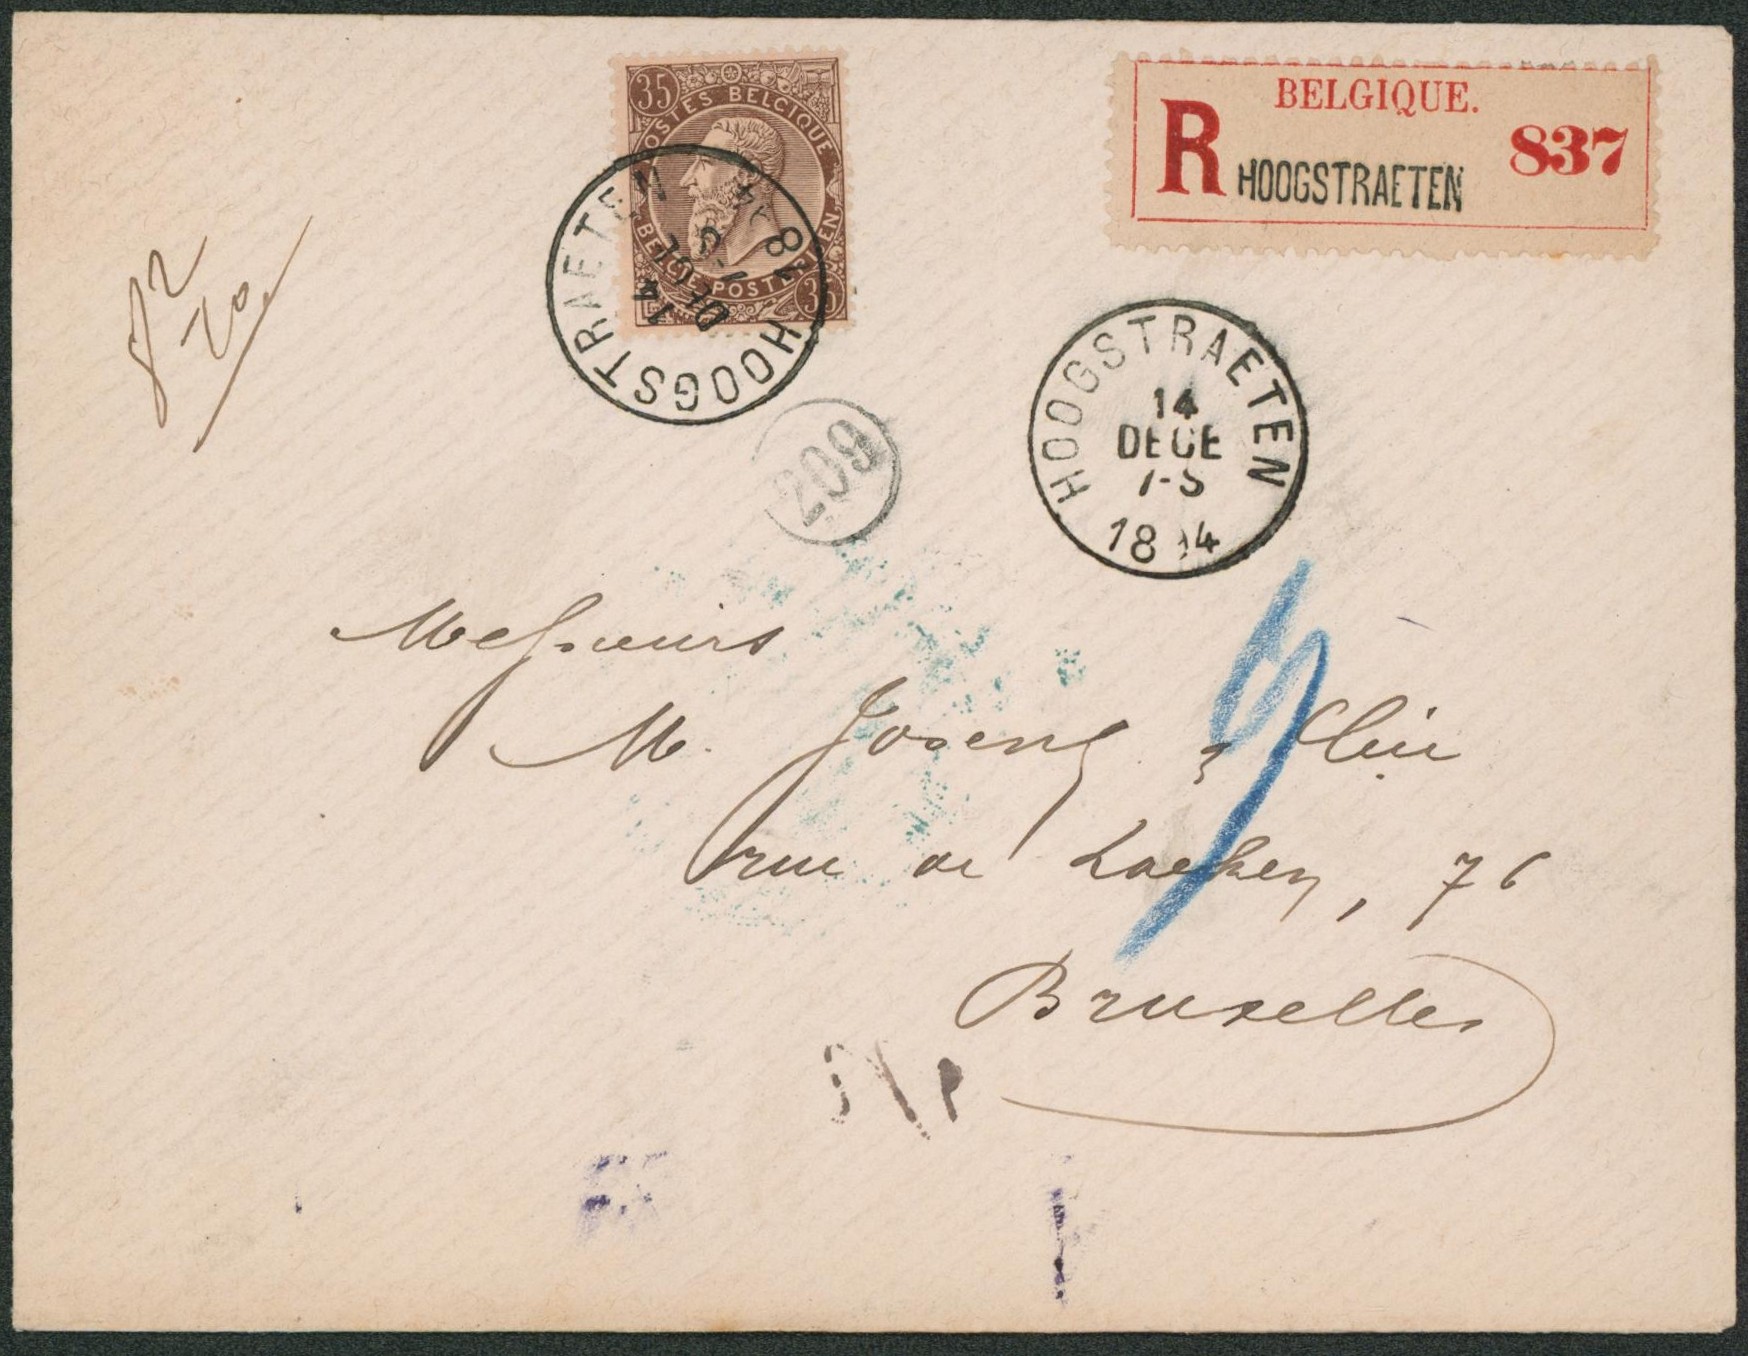 35
POSTES BELGIQUE
BELGIE POSTERIJEN
35
HOOGSTRAETEN
14
DECE
7-S
BELGIQUE.
R HOOGSTRAETEN 837
HOOGSTRAETEN
14
DECE
7-S
18 4
209
82
Messieurs
M. & Cie
rue de Laeken, 76
Bruxelles